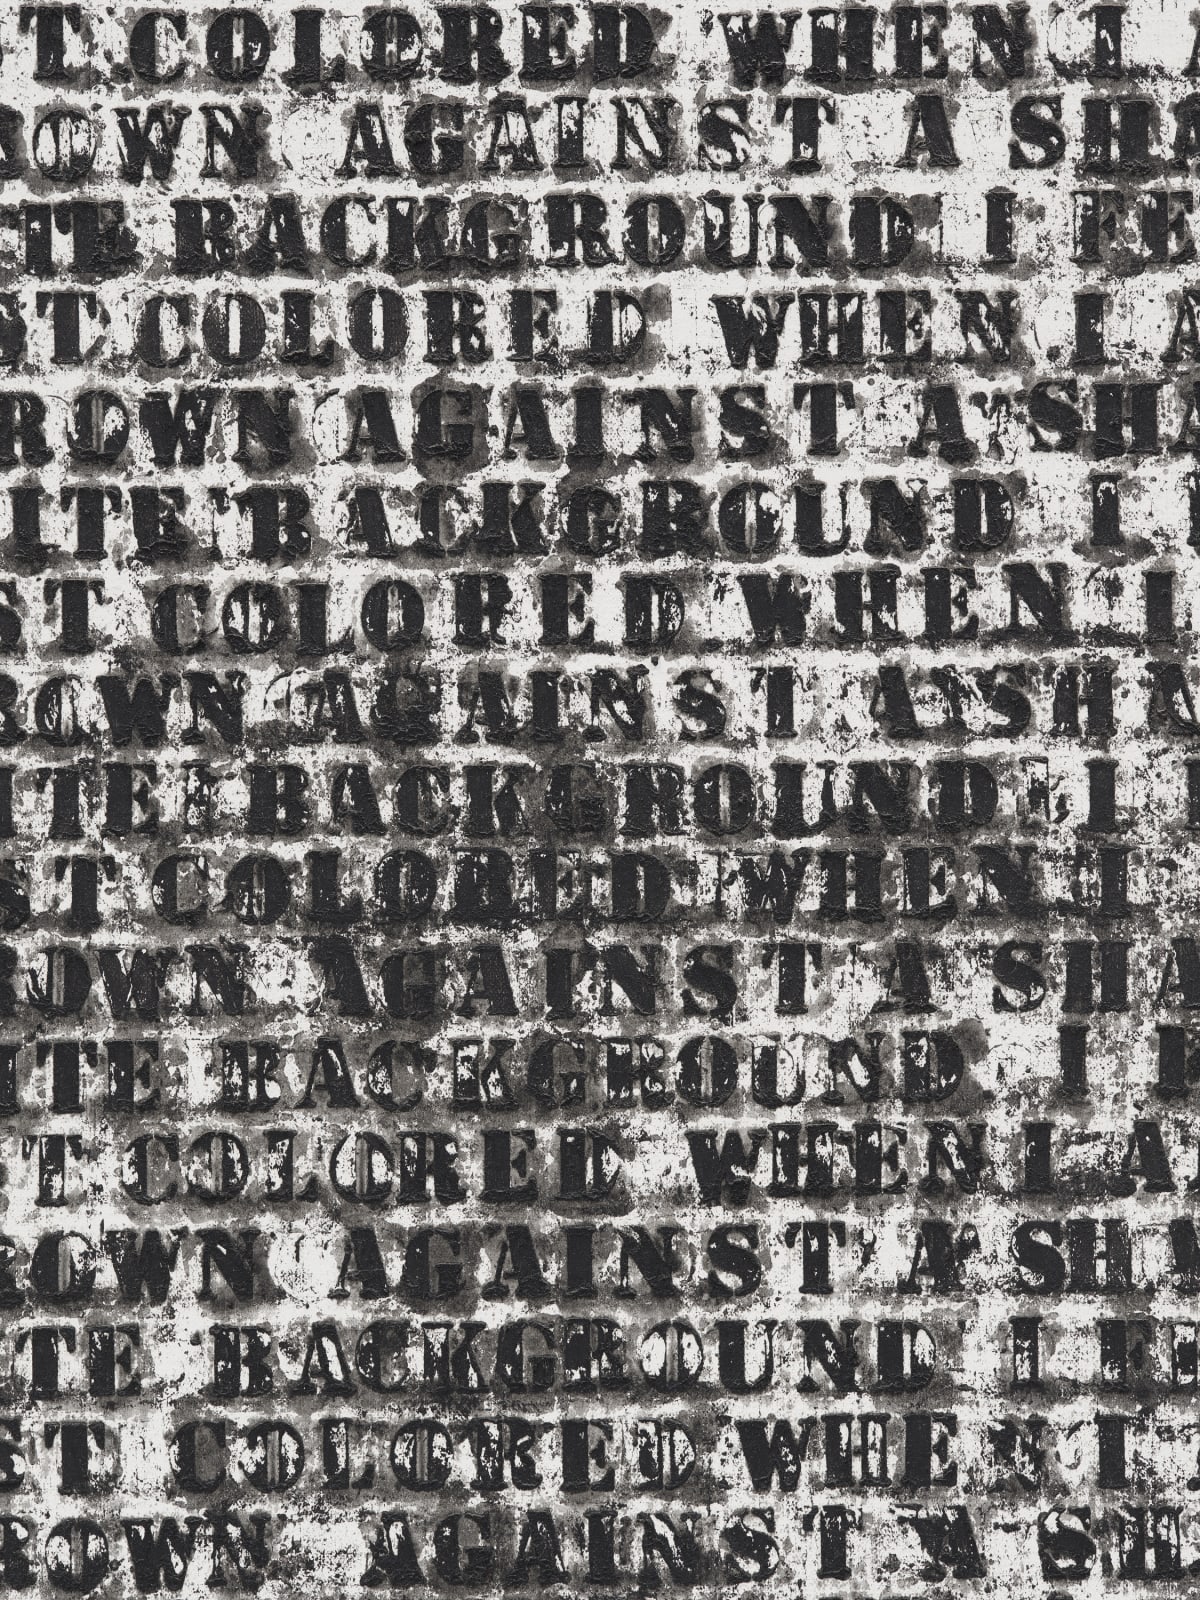 T COLORED WHEN I A
OWN AGAINST A SHA
TE BACKGROUND I FE
ST COLORED WHEN I A
ROWN AGAINST A SHA
ITE BACKGROUND I
ST COLORED WHEN I
ROWN AGAINST A SHA
ITE BACKGROUND I F
ST COLORED WHEN I
ROWN AGAINST A SHA
ITE BACKGROUND I F
T COLORED WHEN I A
ROWN AGAINST A SHA
TE BACKGROUND I FE
ST COLORED WHEN I
ROWN AGAINST A SH